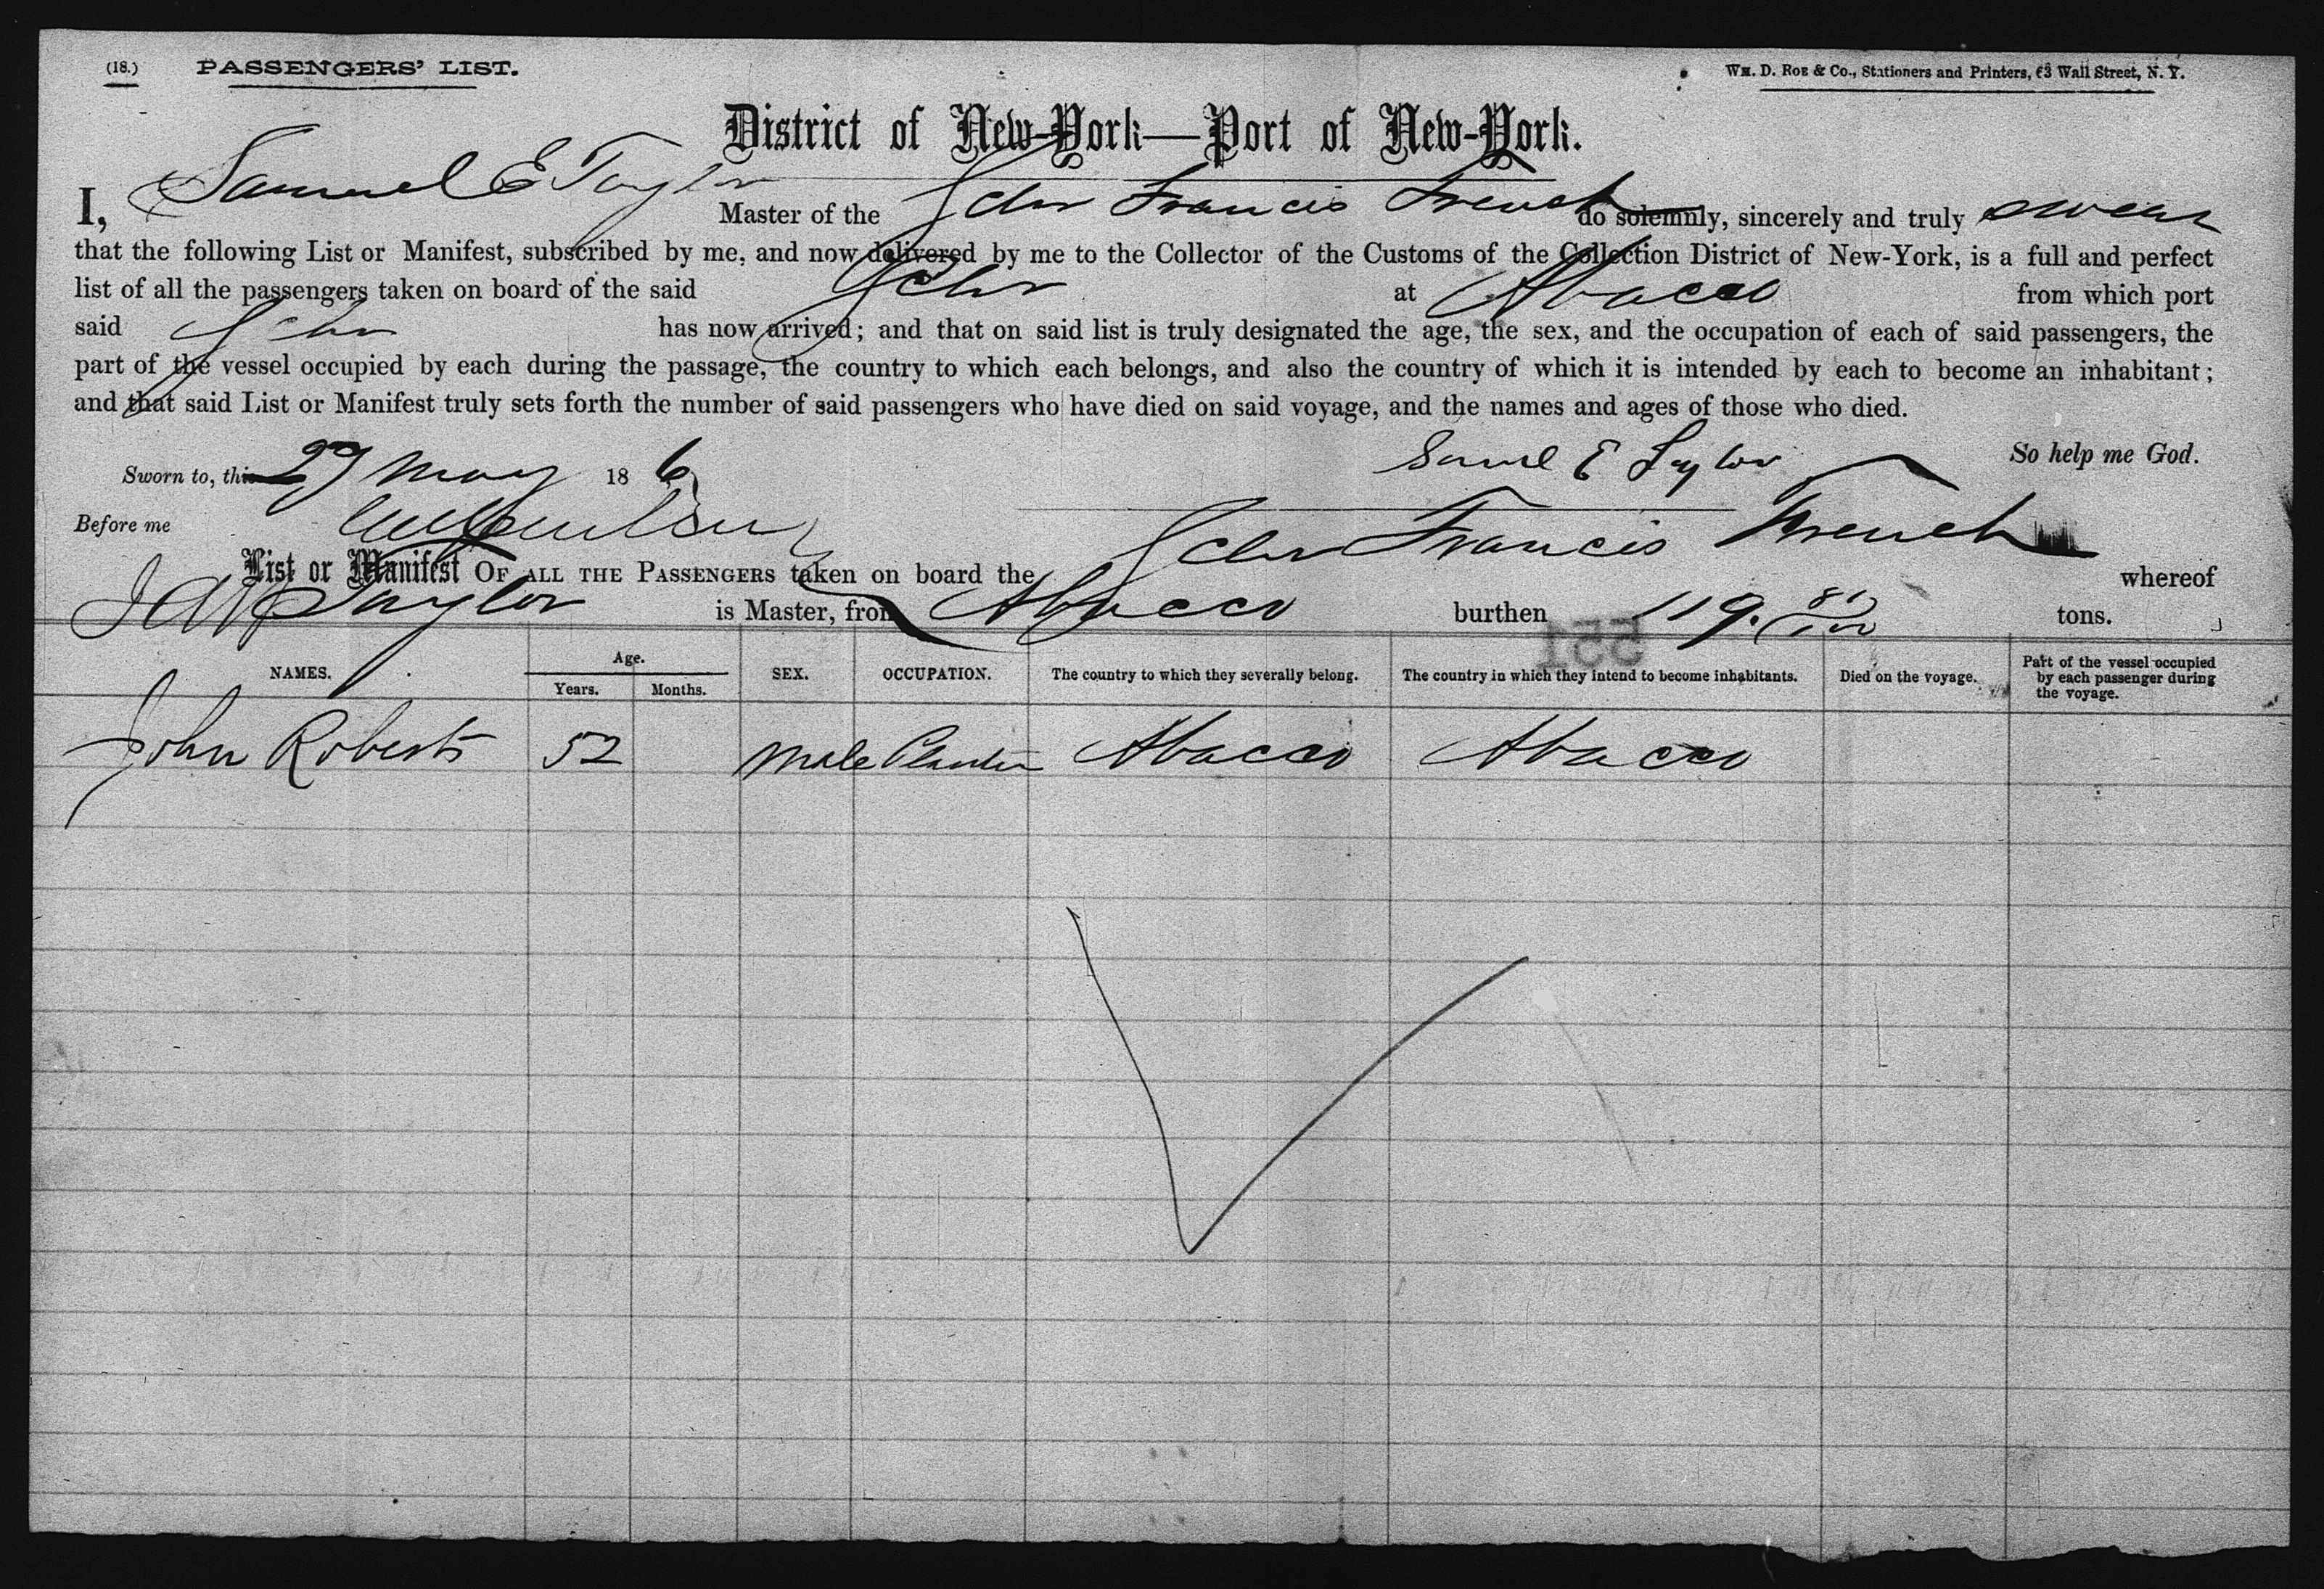 (18.) PASSENGERS' LIST. WM. D. ROE & Co., Stationers and Printers, 63 Wall Street, N. Y.
District of New-York—Port of New-York.
I, Samuel E Taylor Master of the Schr Francis French do solemnly, sincerely and truly swear
that the following List or Manifest, subscribed by me, and now delivered by me to the Collector of the Customs of the Collection District of New-York, is a full and perfect
list of all the passengers taken on board of the said Schr at Abacco from which port
said Schr has now arrived; and that on said list is truly designated the age, the sex, and the occupation of each of said passengers, the
part of the vessel occupied by each during the passage, the country to which each belongs, and also the country of which it is intended by each to become an inhabitant;
and that said List or Manifest truly sets forth the number of said passengers who have died on said voyage, and the names and ages of those who died.
So help me God.
Sworn to, this 29 May 186 Saml E Taylor
Before me
List or Manifest OF ALL THE PASSENGERS taken on board the Schr Francis French whereof
Taylor is Master, from Abacco burthen 119. 81/100 tons.
551
NAMES. Age. Years. Months. SEX. OCCUPATION. The country to which they severally belong. The country in which they intend to become inhabitants. Died on the voyage. Part of the vessel occupied by each passenger during the voyage.
John Roberts 52 Male Planter Abacco Abacco